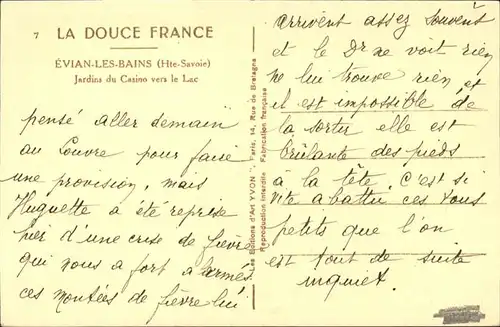 7 LA DOUCE FRANCE
ÉVIAN-LES-BAINS (Hte-Savoie)
Jardins du Casino vers le Lac
pensé aller demain
au Louvre pour faire
une provision, mais
Huguette a été reprise
hier d'une crise de fièvre
qui nous a fort alarmés
ces montées de fièvre lui
Les Editions d'Art YVON", Paris, 14, Rue de Bretagne
Reproduction interdite Fabrication française
arrivent assez souvent
et le Dr ne voit rien
ne lui trouve rien et
il est impossible de
la sortir elle est
brûlante des pieds
à la tête. C'est si
vite abattu ces tous
petits que l'on
est tout de suite
inquiet.